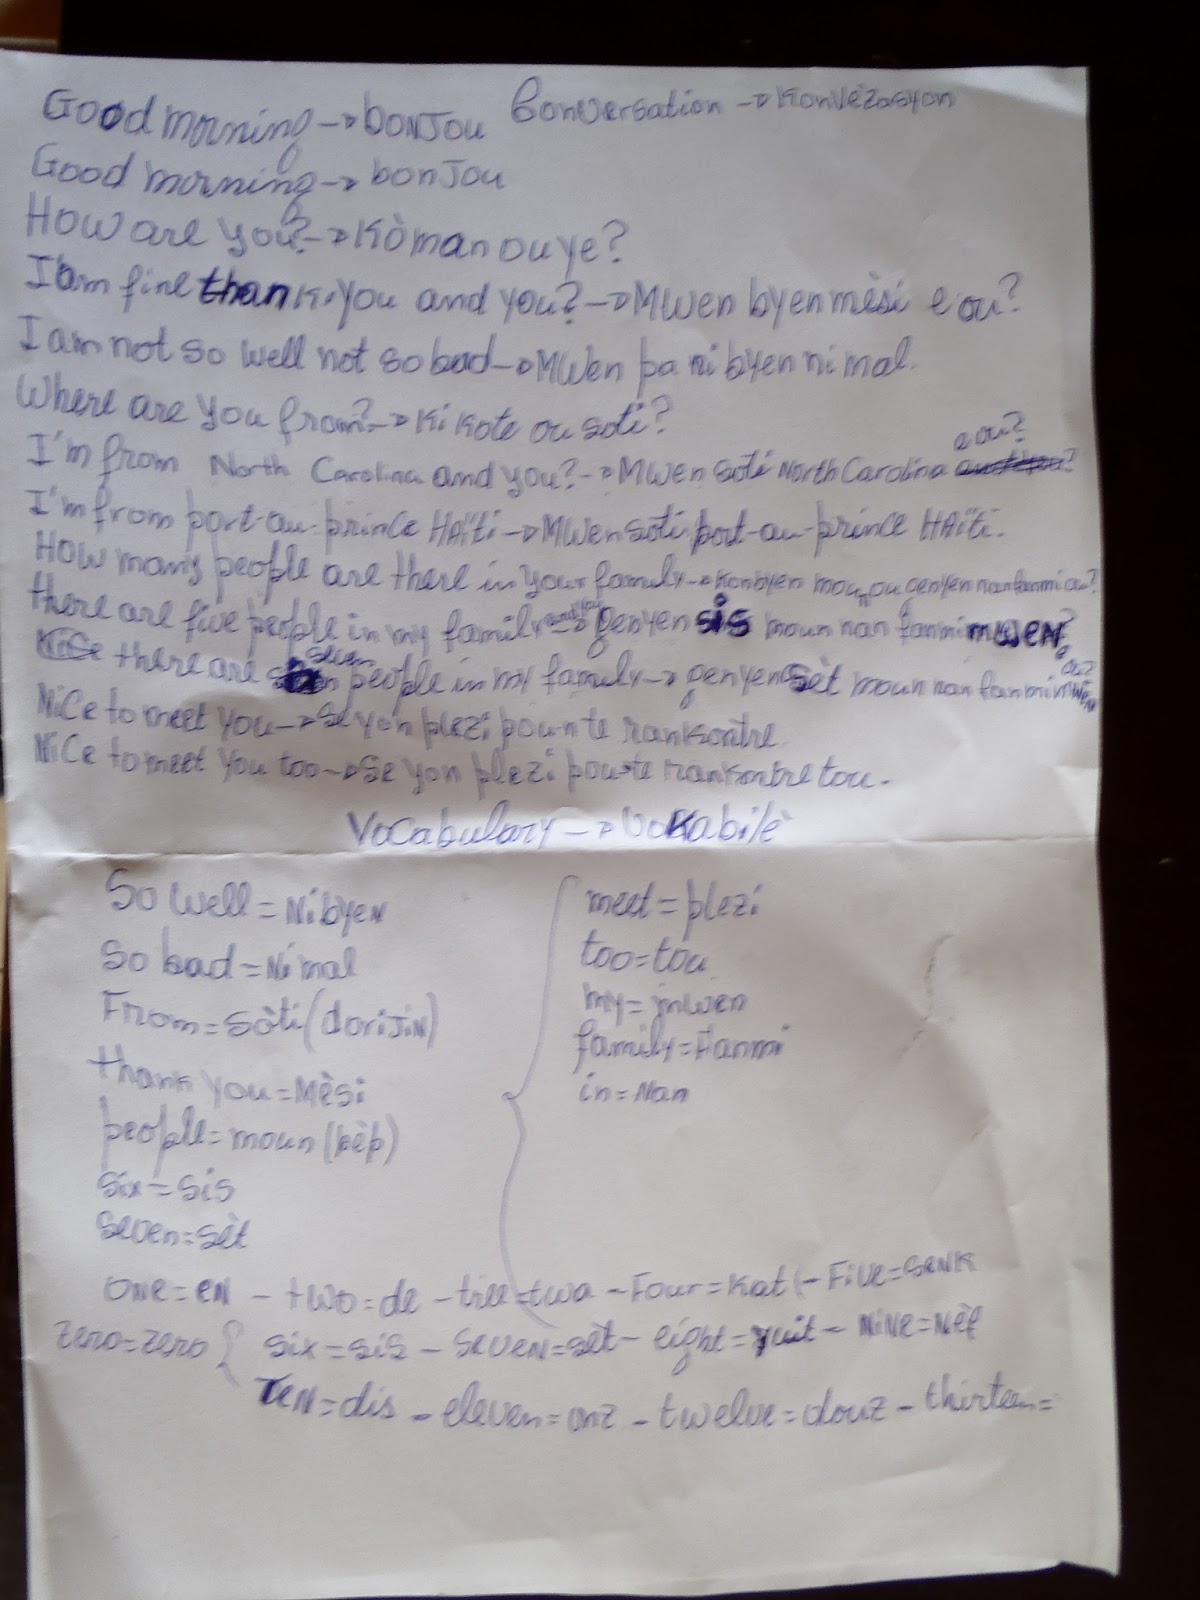 Conversation → Konvèzasyon
Good morning → bonJou
Good morning → bonJou
How are you? → Kòman ou ye?
I'am fine thank you and you? → Mwen byen mèsi e ou?
I am not so well not so bad → Mwen pa ni byen ni mal.
Where are you from? → Ki kote ou soti?
I'm from North Carolina and you? → Mwen soti North Carolina e ou?
I'm from port-au-prince HAïti → Mwen soti port-au-prince HAïti.
How many people are there in your family → Konbyen moun ou genyen nan fanmi ou?
there are five people in my family and you → genyen sis moun nan fanmi mwen? e ou?
there are seven people in my family → genyen sèt moun nan fanmi mwen
Nice to meet you → se yon plezi poun te rankontre.
Nice to meet you too → se yon plezi pou te rankontre tou.
Vocabulary → Vokabilè
So well = Ni byen
So bad = Ni mal
From = sòti (dorijin)
thank you = Mèsi
people = moun (pèp)
six = sis
seven = sèt
meet = plezi
too = tou
my = mwen
family = Fanmi
in = Nan
one = en - two = de - tree = twa - Four = Kat - Five = senk
Zero = zero { six = sis - Seven = sèt - eight = yuit - Nine = Nèf
Ten = dis - eleven = onz - twelve = douz - thirteen =